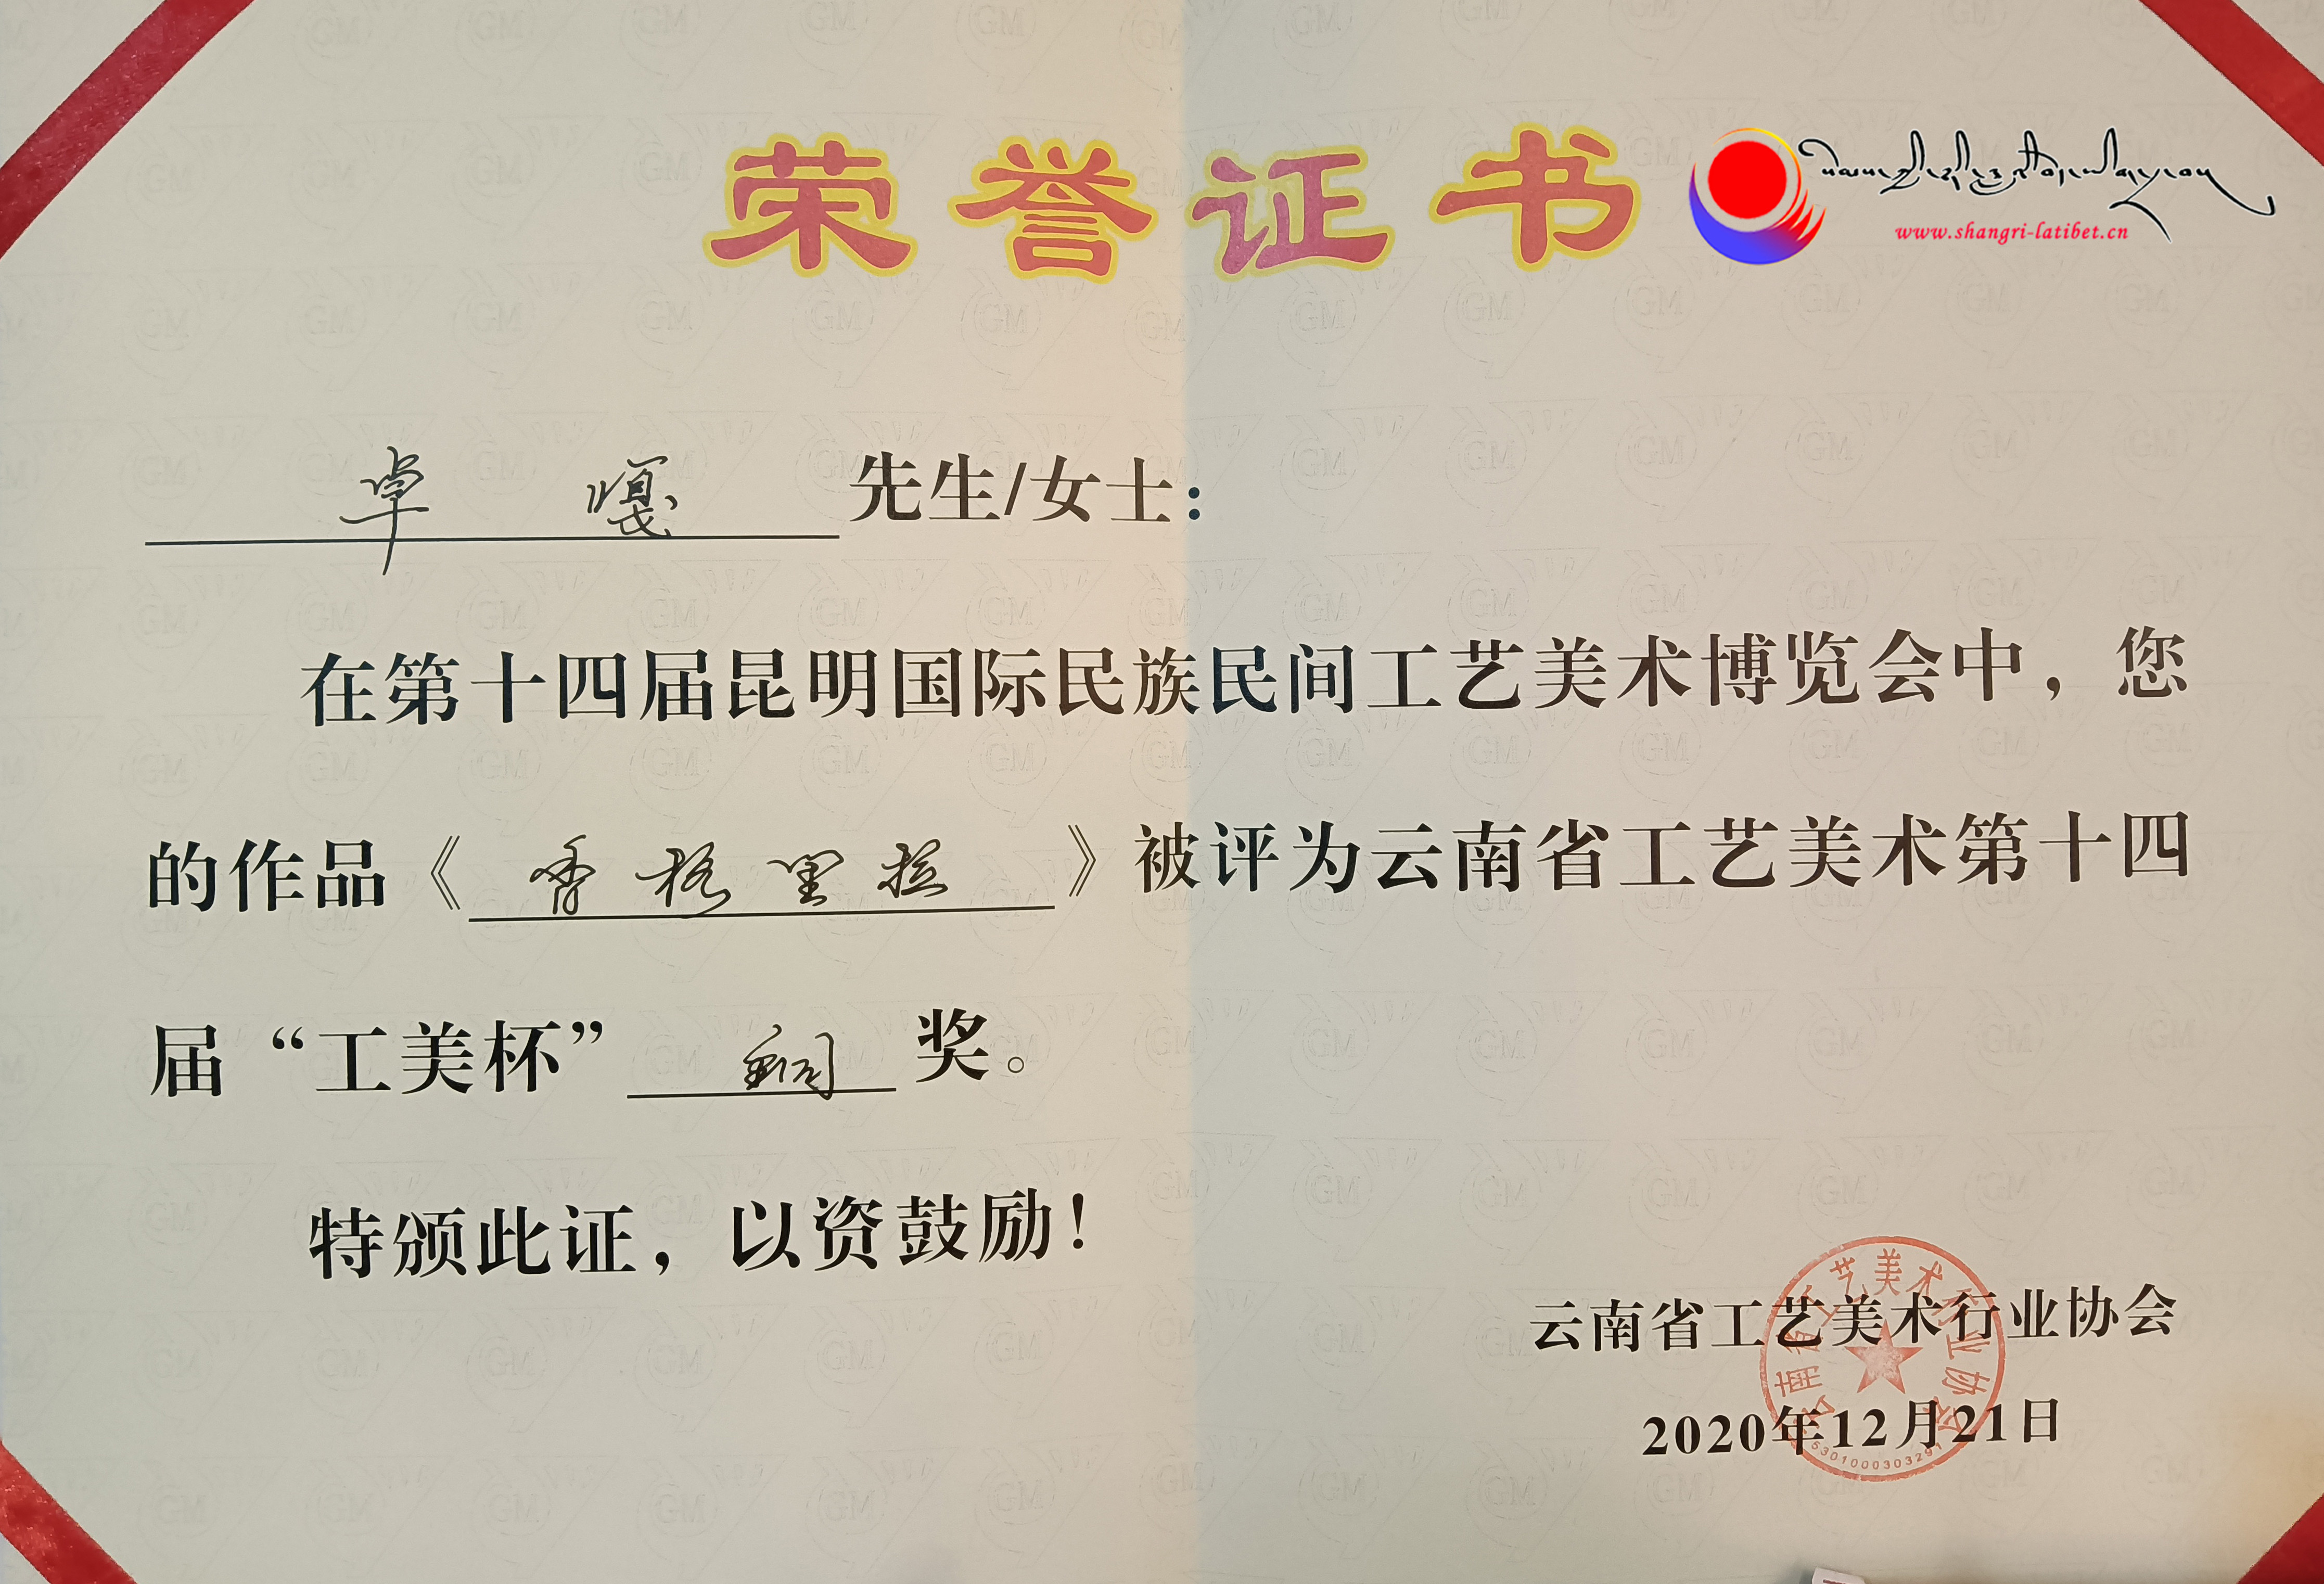 荣誉证书
www.shangri-latibet.cn
卓 嘎 先生/女士：
在第十四届昆明国际民族民间工艺美术博览会中，您
的作品《香格里拉》被评为云南省工艺美术第十四
届“工美杯” 铜 奖。
特颁此证，以资鼓励！
云南省工艺美术行业协会
2020年12月21日
云南省工艺美术行业协会
5301000303291